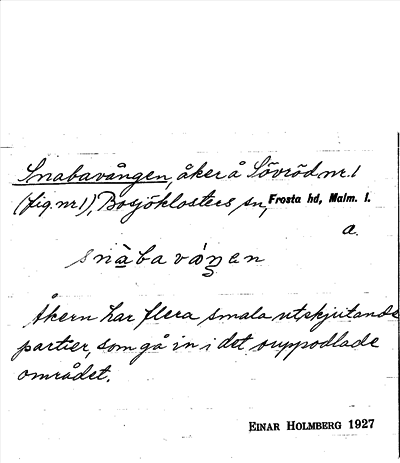 Snabavången, åker å Sövröd nr. 1
(fig. nr 1), Bosjöklosters sn, Frosta hd, Malm. l.
a.
snàbavá̱ŋen
Åkern har flera smala utskjutande
partier, som gå in i det ouppodlade
området.
EINAR HOLMBERG 1927